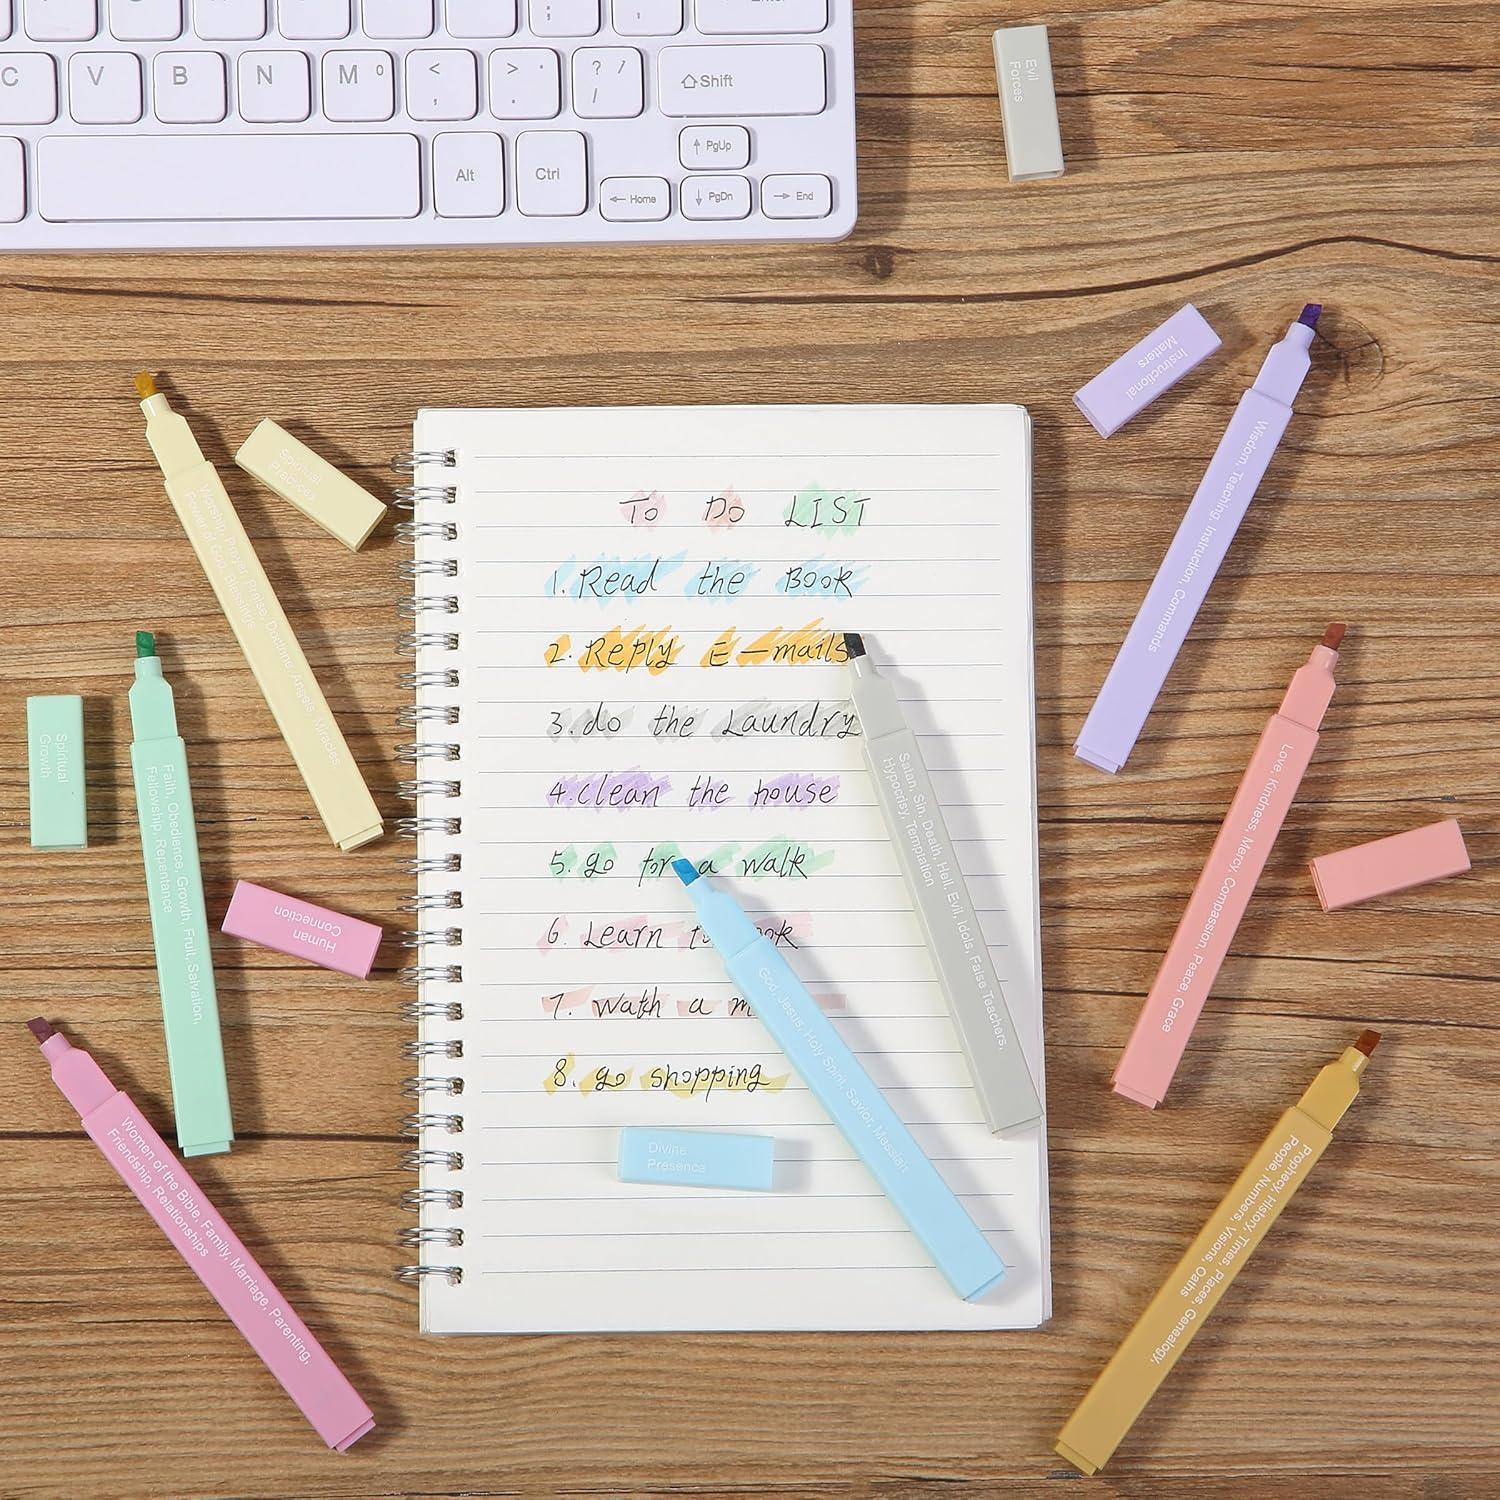 C V B N M 0 < , > . ? / Shift
Alt Ctrl PgUp
Home PgDn End
Evil
Forces
Instructional
Matters
Wisdom, Teaching, Instruction, Commands
Spiritual
Practices
Worship, Prayer, Praise, Doctrine, Angels, Miracles
Power of God, Blessings
TO DO LIST
1. Read the Book
2. Reply E-mails
3. do the Laundry
4. clean the house
5. go for a walk
6. Learn
7. Watch a
8. go shopping
Satan, Sin, Death, Hell, Evil, Idols, False Teachers,
Hypocrisy, Temptation
God, Jesus, Holy Spirit, Savior, Messiah
Divine
Presence
Spiritual
Growth
Faith, Obedience, Growth, Fruit, Salvation,
Fellowship, Repentance
Human
Connection
Women of the Bible, Family, Marriage, Parenting,
Friendship, Relationships
Love, Kindness, Mercy, Compassion, Peace, Grace
Prophecy, History, Times, Places, Genealogy,
People, Numbers, Visions, Oaths